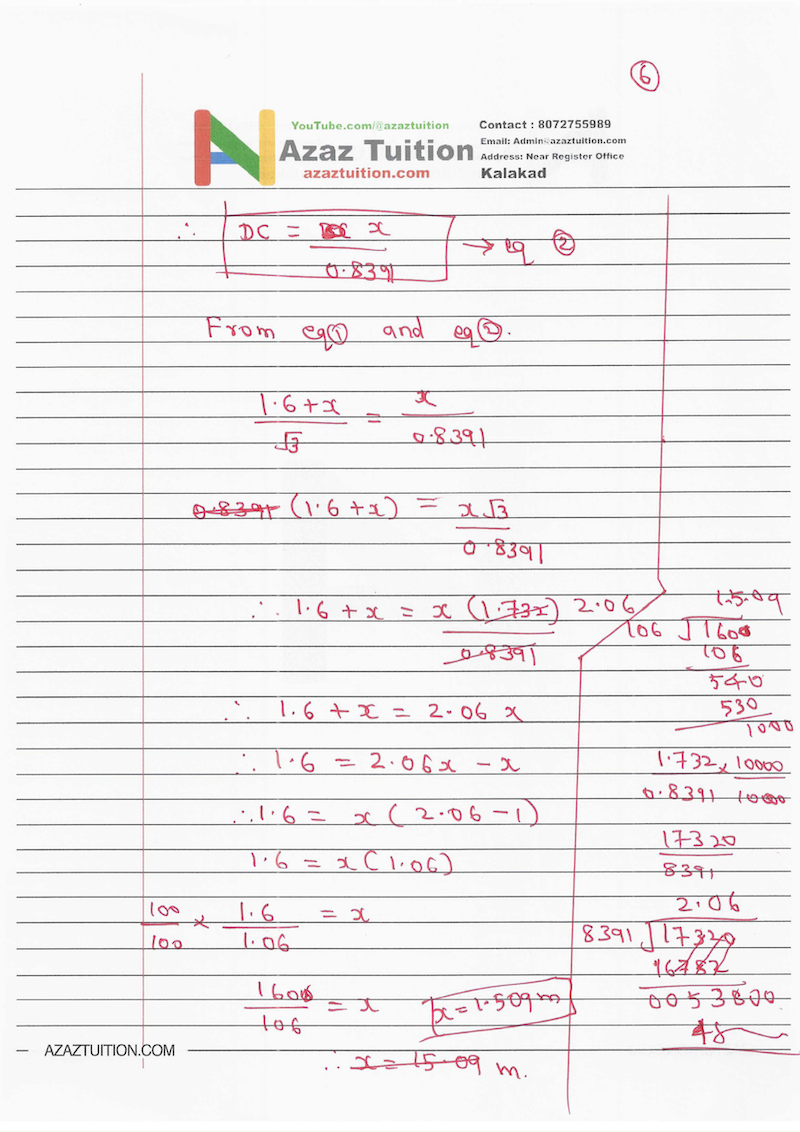 6
YouTube.com/@azaztuition
Azaz Tuition
azaztuition.com
Contact : 8072755989
Email: Admin@azaztuition.com
Address: Near Register Office
Kalakad
∴ DC = x / 0.8391 → eq ②
From eq① and eq②.
1.6+x / √3 = x / 0.8391
0.8391 (1.6+x) = x√3 / 0.8391
∴ 1.6+x = x (1.732) / 0.8391 2.06
∴ 1.6+x = 2.06 x
∴ 1.6 = 2.06x - x
∴ 1.6 = x ( 2.06 - 1 )
1.6 = x (1.06)
100 / 100 × 1.6 / 1.06 = x
160 / 106 = x
x = 1.509 m
∴ x = 15.09 m.
15.09
106 √ 160
106
540
530
1000
1.732 / 0.8391 × 10000 / 10000
17320 / 8391
2.06
8391 √ 17320
16782
0053800
48
AZAZTUITION.COM